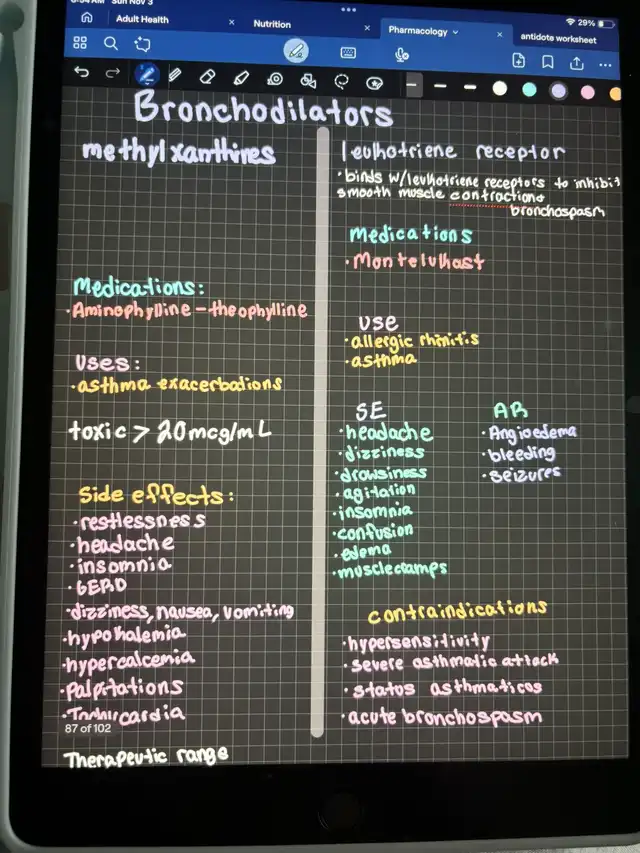 Sun Nov 3
29%
Adult Health
Nutrition
Pharmacology
antidote worksheet
Bronchodilators
methylxanthines
Medications:
·Aminophylline - theophylline
Uses:
·asthma exacerbations
toxic > 20mcg/mL
Side effects:
·restlessness
·headache
·insomnia
·GERD
·dizziness, nausea, vomiting
·hypokalemia
·hypercalcemia
·palpitations
·Tachycardia
87 of 102
Therapeutic range
leukotriene receptor
·binds w/leukotriene receptors to inhibit
smooth muscle contraction+
bronchospasm
medications
·Montelukast
USE
·allergic rhinitis
·asthma
SE
·headache
·dizziness
·drowsiness
·agitation
·insomnia
·confusion
·edema
·muscle cramps
AR
·Angioedema
·bleeding
·seizures
contraindications
·hypersensitivity
·severe asthmatic attack
·status asthmaticos
·acute bronchospasm